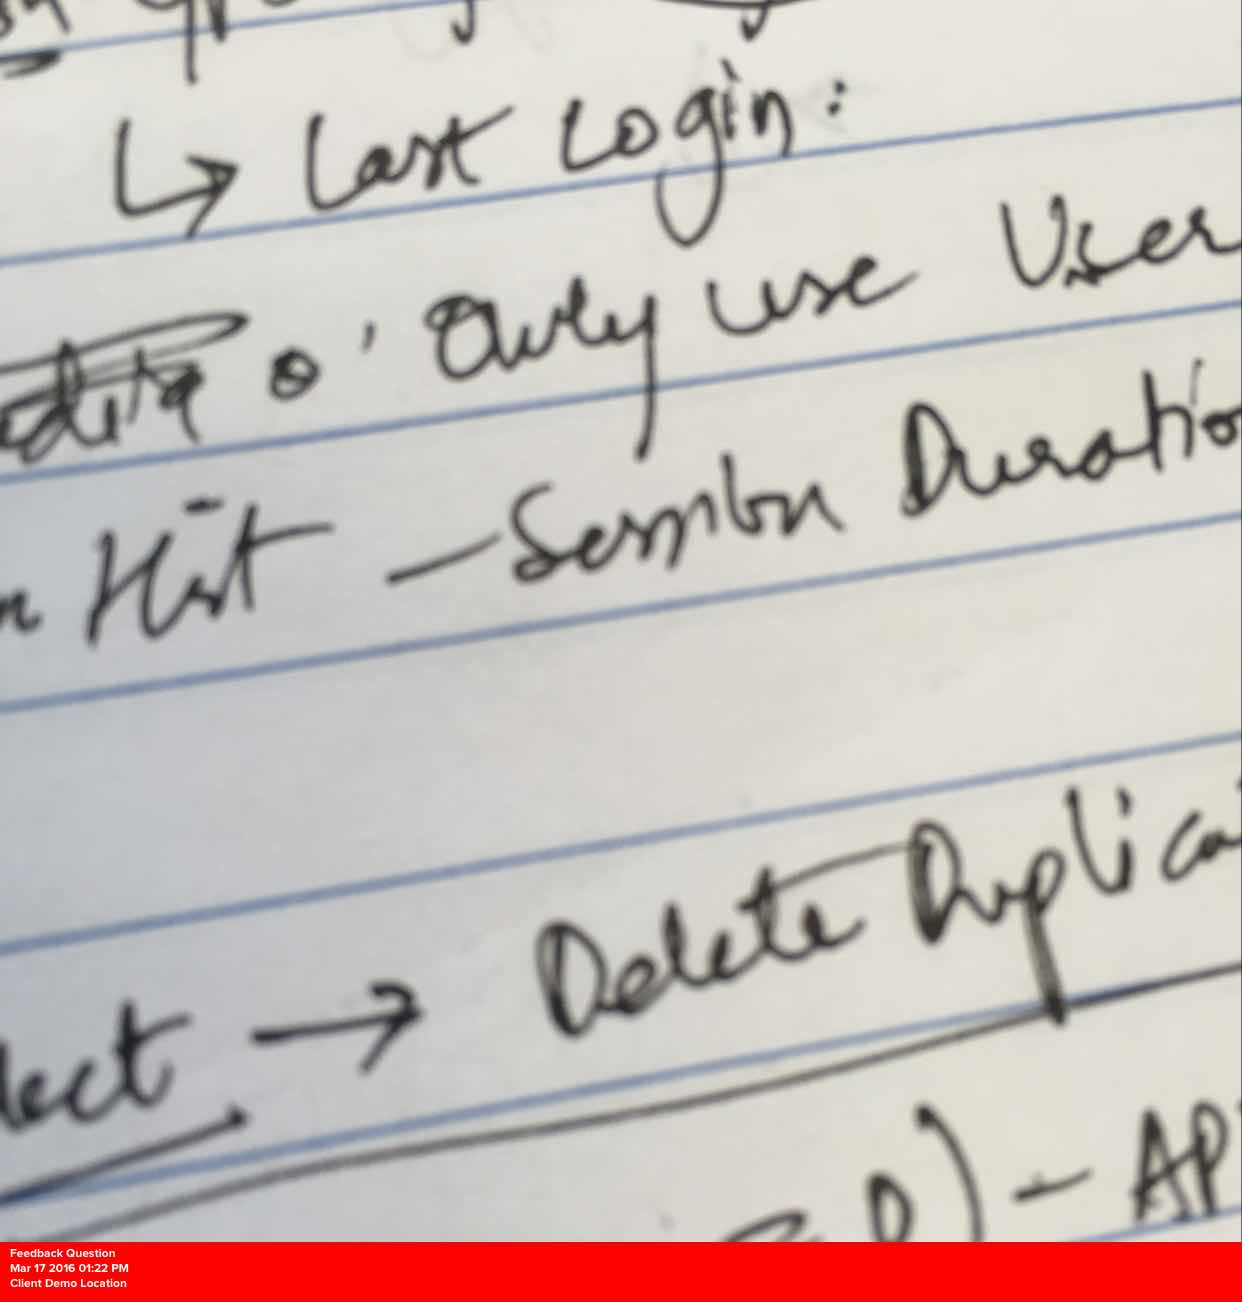 ↳ Last Login:
Only use User
Hist – Session Duratio
lect → Delete Duplica
0) – AP
Feedback Question
Mar 17 2016 01:22 PM
Client Demo Location